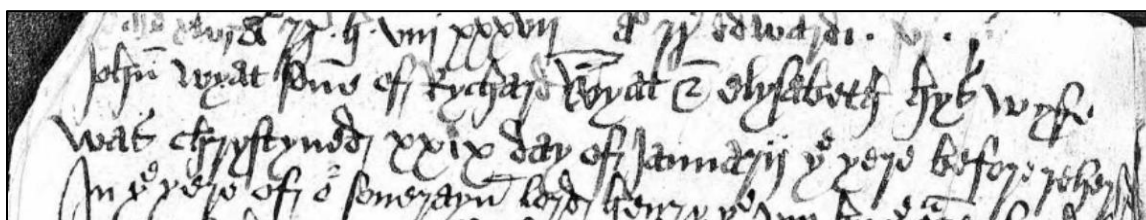 R . h . viii xxxvii a° R edwardi . vi .
John wyat sone of Rychard wyat & elysabeth hys wyfe
was chrystyned xxix day of Januarii ye yere before rehers
In ye yere of or soverayn lord henry ye